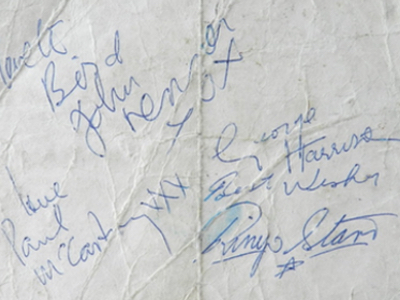 Bird
John
Lennon
xxx
love
Paul
McCartney xxx
George
Harrison
Best Wishes
Ringo Starr